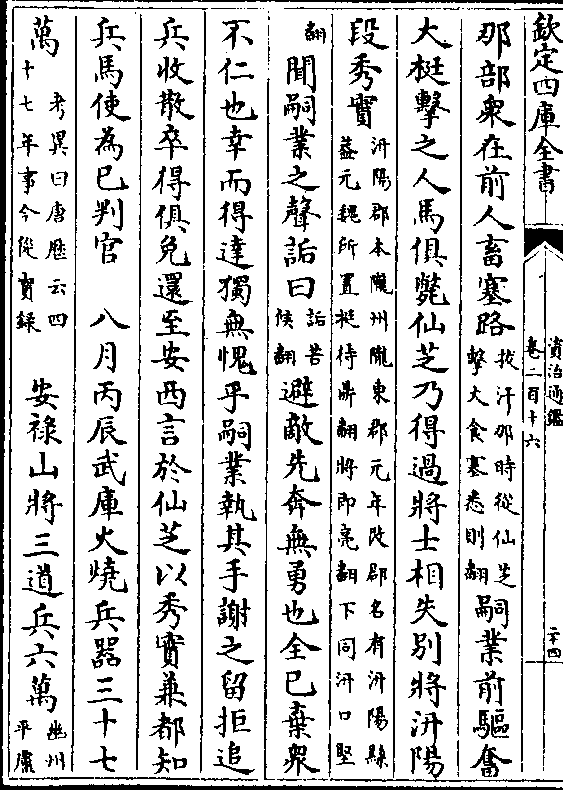 欽定四庫全書
資治通鑑
卷二百十六
二十四
那部衆在前人畜塞路拔汗那時從仙芝擊大食塞悉則翻嗣業前驅奮
大梃擊之人馬俱斃仙芝乃得過將士相失别將汧陽
段秀實汧陽郡本隴州隴東郡元年改郡名有汧陽縣葢元魏所置梃待鼎翻將即亮翻下同汧口堅
翻聞嗣業之聲詬曰詬苦候翻避敵先奔無勇也全已棄衆
不仁也幸而得達獨無愧乎嗣業執其手謝之留拒追
兵收散卒得俱免還至安西言於仙芝以秀實兼都知
兵馬使為已判官 八月丙辰武庫火燒兵器三十七
萬考異曰唐歷云四十七年事今從實録 安祿山將三道兵六萬幽州平盧